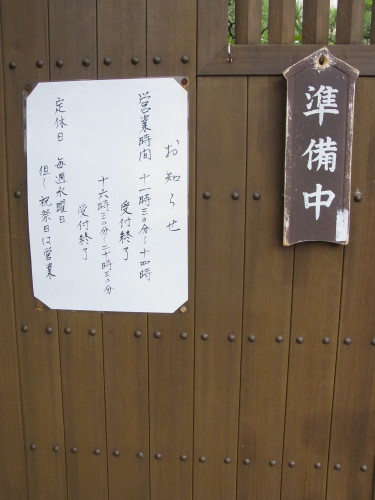 お知らせ
営業時間 十一時三0分〜十四時
受付終了
十六時三0分〜二十時三0分
受付終了
定休日 毎週水曜日
但し祝祭日は営業
準備中